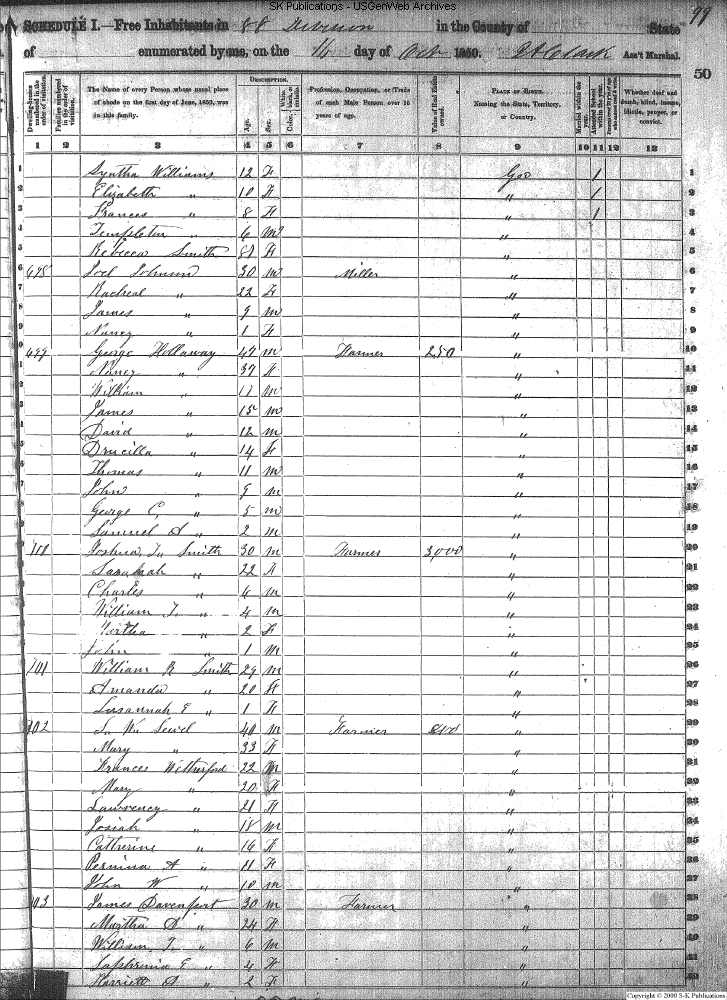 SK Publications - USGenWeb Archives
99
SCHEDULE I.—Free Inhabitants in 88 Division in the County of State
of enumerated by me, on the 16 day of Oct 1850. Ass't Marshal.
50
Dwelling-houses numbered in the order of visitation.
Families numbered in the order of visitation.
The Name of every Person whose usual place of abode on the first day of June, 1850, was in this family.
DESCRIPTION.
Age.
Sex.
White, Color, black, or mulatto.
Profession, Occupation, or Trade of each Male Person over 15 years of age.
Value of Real Estate owned.
PLACE OF BIRTH. Naming the State, Territory, or Country.
Married within the year.
Attended School within the year.
Whether deaf and dumb, blind, insane, idiotic, pauper, or convict.
1 2 3 4 5 6 7 8 9 10 11 12 13
1 Syntha Williams 12 F Geo 1 1
2 Elizabeth " 10 F " 1 2
3 Frances " 8 F " 1 3
4 Templeton " 6 M " 4
5 Rebecca Smith F " 5
6 698 Joel Johnson 30 M Miller " 6
7 Racheal " 22 F " 7
8 James " 9 M " 8
9 Nancy " 1 F " 9
10 699 George Hollaway 47 M Farmer 250 " 10
11 Nancy " 37 F " 11
12 William " 17 M " 12
13 James " 15 M " 13
14 David " 12 M " 14
15 Drucilla " 14 F " 15
16 Thomas " 11 M " 16
17 John " 9 M " 17
18 George C. " 5 M " 18
19 Samuel A " 2 M " 19
20 700 Joshua Smith 30 M Farmer 3,000 " 20
21 Sarahah " 22 F " 21
22 Charles " 4 M " 22
23 William T. " 4 M " 23
24 Martha " 2 F " 24
25 John " 1 M " 25
26 701 William R Smith 29 M " 26
27 Amanda " 20 F " 27
28 Susannah E " 1 F " 28
29 702 Sewel 40 M Farmer " 29
30 Mary " 33 F " 30
31 Frances Witherford 22 M " 31
32 Mary " 20 F " 32
33 Lawrency " 21 F " 33
34 Josiah " 18 M " 34
35 Catherine " 16 F " 35
36 Pernina A " 11 F " 36
37 John W " 10 M " 37
38 703 James Davenport 30 M Farmer " 38
39 Martha A " 24 F " 39
40 William T. " 6 M " 40
41 Saphrenia E " 4 F " 41
42 Harriett A " 2 F " 42
Copyright © 2000 S-K Publications